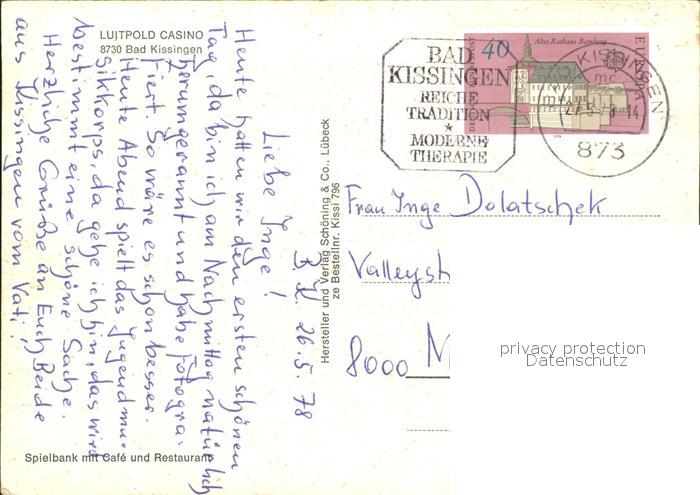 LUITPOLD CASINO
8730 Bad Kissingen
B. K. 26.5.78
Liebe Inge!
Heute hatten wir den ersten schönen
Tag, da bin ich am Nachmittag natürlich
herumgerannt und habe fotogra-
fiert. So wäre es schon besser.
Heute Abend spielt das Jugendmu-
sikkorps, da gehe ich hin, das wird
bestimmt eine schöne Sache.
Herzliche Grüße an Euch Beide
aus Kissingen vom Vati!
Spielbank mit Café und Restaurant
Hersteller und Verlag Schöning & Co., Lübeck
ze Bestellnr. Kissi 796
BAD
KISSINGEN
REICHE
TRADITION
★
MODERNE
THERAPIE
40
Altes Rathaus Bamberg
EUROPA
KISSINGEN
mc
873
Frau Inge Dolatschek
Valleyst
8000 M
privacy protection
Datenschutz